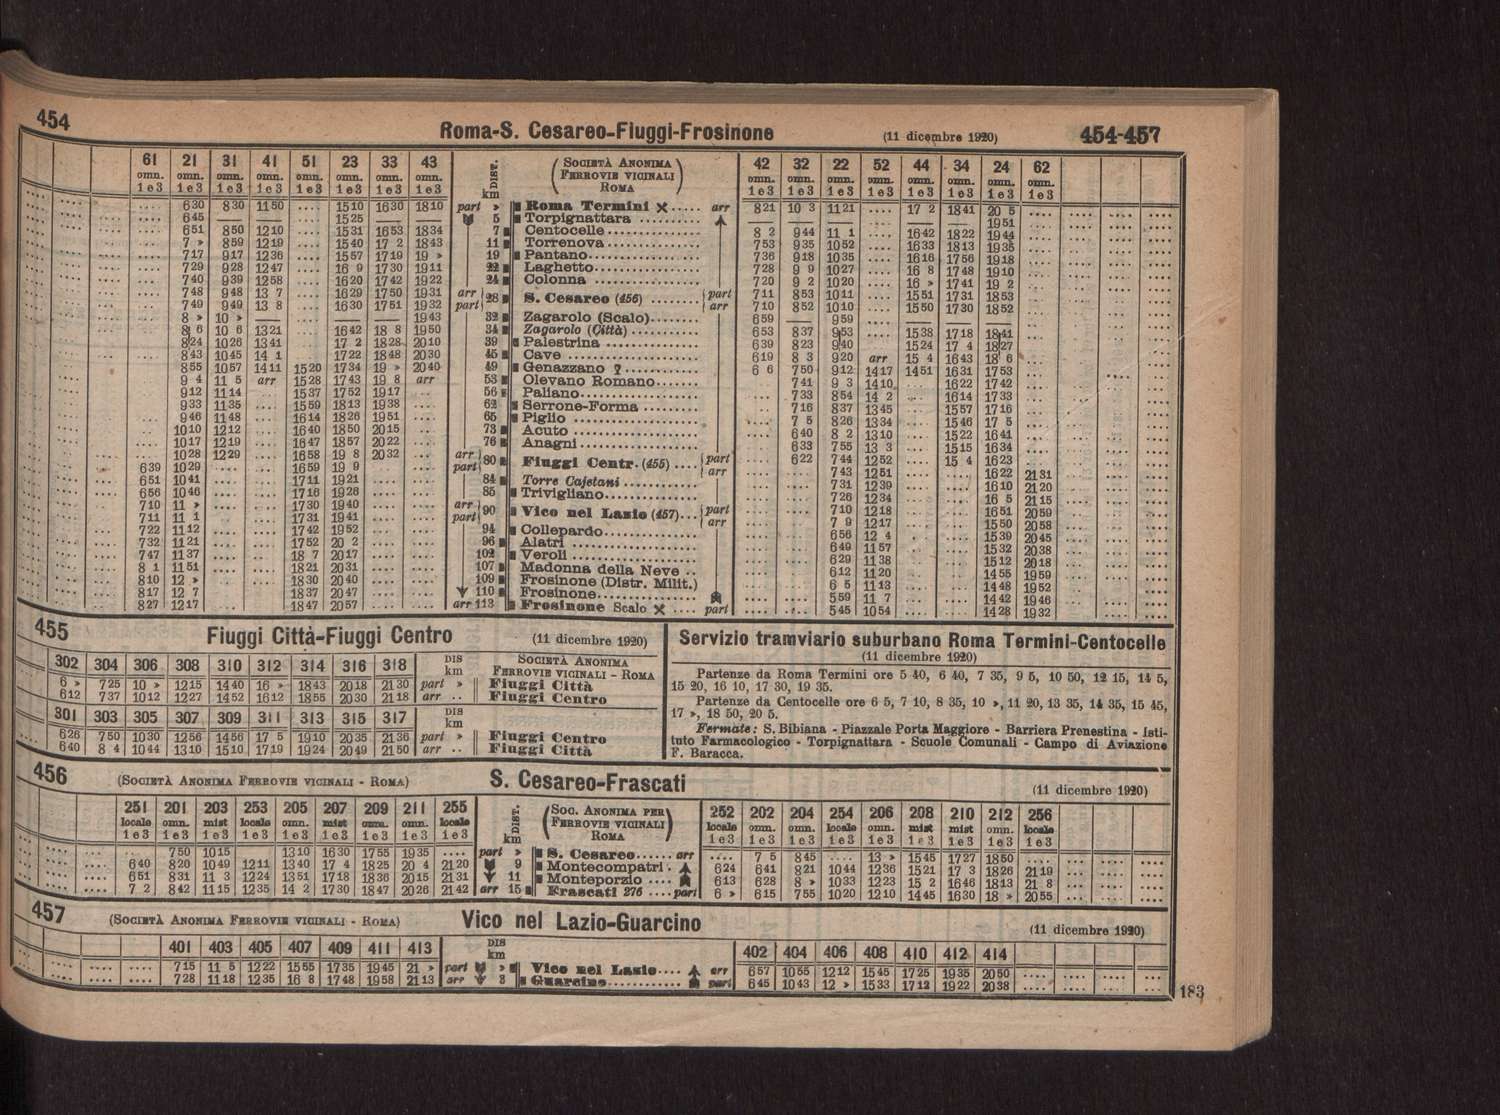 454
Roma-S. Cesareo-Fiuggi-Frosinone (11 dicembre 1920) 454-457
61 21 31 41 51 23 33 43 DIST. km (SOCIETÀ ANONIMA FERROVIE VICINALI ROMA) 42 32 22 52 44 34 24 62
omn. omn. omn. omn. omn. omn. omn. omn. omn. omn. omn. omn. omn. omn. omn. omn.
1 e 3 1 e 3 1 e 3 1 e 3 1 e 3 1 e 3 1 e 3 1 e 3 1 e 3 1 e 3 1 e 3 1 e 3 1 e 3 1 e 3 1 e 3 1 e 3
.... 6 30 8 30 11 50 .... 15 10 16 30 18 10 part » Roma Termini ..... arr 8 21 10 3 11 21 .... 17 2 18 41 20 5 ....
.... 6 45 — — .... 15 25 — — 5 Torpignattara ......... — — — .... — — 19 51 ....
.... 6 51 8 50 12 10 .... 15 31 16 53 18 34 7 Centocelle .............. 8 2 9 44 11 1 .... 16 42 18 22 19 44 ....
.... 7 » 8 59 12 19 .... 15 40 17 2 18 43 11 Torrenova............... 7 53 9 35 10 52 .... 16 33 18 13 19 35 ....
.... 7 17 9 17 12 36 .... 15 57 17 19 19 » 19 Pantano................. 7 36 9 18 10 35 .... 16 16 17 56 19 18 ....
.... 7 29 9 28 12 47 .... 16 9 17 30 19 11 22 Laghetto................ 7 28 9 9 10 27 .... 16 8 17 48 19 10 ....
.... 7 40 9 39 12 58 .... 16 20 17 42 19 22 24 Colonna ................ 7 20 9 2 10 20 .... 16 » 17 41 19 2 ....
.... 7 48 9 48 13 7 .... 16 29 17 50 19 31 arr 28 S. Cesareo (456) ........ part 7 11 8 53 10 11 .... 15 51 17 31 18 53 ....
.... 7 49 9 49 13 8 .... 16 30 17 51 19 32 part arr 7 10 8 52 10 10 .... 15 50 17 30 18 52 ....
.... 8 » 10 » — .... — — 19 43 32 Zagarolo (Scalo)........ 6 59 — 9 59 .... — — — ....
.... 8 6 10 6 13 21 .... 16 42 18 8 19 50 34 Zagarolo (Città) ......... 6 53 8 37 9 53 .... 15 38 17 18 18 41 ....
.... 8 24 10 26 13 41 .... 17 2 18 28 20 10 39 Palestrina .............. 6 39 8 23 9 40 .... 15 24 17 4 18 27 ....
.... 8 43 10 45 14 1 .... 17 22 18 48 20 30 45 Cave .................... 6 19 8 3 9 20 arr 15 4 16 43 18 6 ....
.... 8 55 10 57 14 11 15 20 17 34 19 » 20 40 49 Genazzano ............. 6 6 7 50 9 12 14 17 14 51 16 31 17 53 ....
.... 9 4 11 5 arr 15 28 17 43 19 8 arr 53 Olevano Romano....... .... 7 41 9 3 14 10 .... 16 22 17 42 ....
.... 9 12 11 14 .... 15 37 17 52 19 17 .... 56 Paliano.................. .... 7 33 8 54 14 2 .... 16 14 17 33 ....
.... 9 33 11 35 .... 15 59 18 13 19 38 .... 62 Serrone-Forma ......... .... 7 16 8 37 13 45 .... 15 57 17 16 ....
.... 9 46 11 48 .... 16 14 18 26 19 51 .... 65 Piglio ................... .... 7 5 8 26 13 34 .... 15 46 17 5 ....
.... 10 10 12 12 .... 16 40 18 50 20 15 .... 73 Acuto ................... .... 6 40 8 2 13 10 .... 15 22 16 41 ....
.... 10 17 12 19 .... 16 47 18 57 20 22 .... 76 Anagni .................. .... 6 33 7 55 13 3 .... 15 15 16 34 ....
.... 10 28 12 29 .... 16 58 19 8 20 32 .... arr 80 Fiuggi Centr. (455) .... part .... 6 22 7 44 12 52 .... 15 4 16 23 ....
6 39 10 29 .... .... 16 59 19 9 .... .... part arr .... .... 7 43 12 51 .... .... 16 22 21 31
6 51 10 41 .... .... 17 11 19 21 .... .... 84 Torre Cajetani ............ .... .... 7 31 12 39 .... .... 16 10 21 20
6 56 10 46 .... .... 17 16 19 26 .... .... 85 Trivigliano.............. .... .... 7 26 12 34 .... .... 16 5 21 15
7 10 11 » .... .... 17 30 19 40 .... .... arr 90 Vico nel Lazio (457)... part .... .... 7 10 12 18 .... .... 16 51 20 59
7 11 11 1 .... .... 17 31 19 41 .... .... part arr .... .... 7 9 12 17 .... .... 15 50 20 58
7 22 11 12 .... .... 17 42 19 52 .... .... 94 Collepardo.............. .... .... 6 56 12 4 .... .... 15 39 20 45
7 32 11 21 .... .... 17 52 20 2 .... .... 96 Alatri ................... .... .... 6 49 11 57 .... .... 15 32 20 38
7 47 11 37 .... .... 18 7 20 17 .... .... 102 Veroli ................... .... .... 6 29 11 38 .... .... 15 12 20 18
8 1 11 51 .... .... 18 21 20 31 .... .... 107 Madonna della Neve .. .... .... 6 12 11 20 .... .... 14 55 19 59
8 10 12 » .... .... 18 30 20 40 .... .... 109 Frosinone (Distr. Milit.) .... .... 6 5 11 13 .... .... 14 48 19 52
8 17 12 7 .... .... 18 37 20 47 .... .... 110 Frosinone............... .... .... 5 59 11 7 .... .... 14 42 19 46
8 27 12 17 .... .... 18 47 20 57 .... .... arr 113 Frosinone Scalo .... part .... .... 5 45 10 54 .... .... 14 28 19 32
455 Fiuggi Città-Fiuggi Centro (11 dicembre 1920)
302 304 306 308 310 312 314 316 318 DIS km SOCIETÀ ANONIMA FERROVIE VICINALI - ROMA
6 » 7 25 10 » 12 15 14 40 16 » 18 43 20 18 21 30 part » Fiuggi Città
6 12 7 37 10 12 12 27 14 52 16 12 18 55 20 30 21 18 arr .. Fiuggi Centro
301 303 305 307 309 311 313 315 317 DIS km
6 26 7 50 10 30 12 56 14 56 17 5 19 10 20 35 21 36 part » Fiuggi Centro
6 40 8 4 10 44 13 10 15 10 17 19 19 24 20 49 21 50 arr .. Fiuggi Città
Servizio tramviario suburbano Roma Termini-Centocelle
(11 dicembre 1920)
Partenze da Roma Termini ore 5 40, 6 40, 7 35, 9 5, 10 50, 12 15, 14 5,
15 20, 16 10, 17 30, 19 35.
Partenze da Centocelle ore 6 5, 7 10, 8 35, 10 », 11 20, 13 35, 14 35, 15 45,
17 », 18 50, 20 5.
Fermate: S. Bibiana - Piazzale Porta Maggiore - Barriera Prenestina - Isti-
tuto Farmacologico - Torpignattara - Scuole Comunali - Campo di Aviazione
F. Baracca.
456 (SOCIETÀ ANONIMA FERROVIE VICINALI - ROMA) S. Cesareo-Frascati (11 dicembre 1920)
251 201 203 253 205 207 209 211 255 DIST. km (SOC. ANONIMA PER FERROVIE VICINALI ROMA) 252 202 204 254 206 208 210 212 256
locale omn. mist locale omn. mist omn. omn. locale locale omn. omn. locale omn. mist mist omn. locale
1 e 3 1 e 3 1 e 3 1 e 3 1 e 3 1 e 3 1 e 3 1 e 3 1 e 3 1 e 3 1 e 3 1 e 3 1 e 3 1 e 3 1 e 3 1 e 3 1 e 3 1 e 3
7 50 10 15 13 10 16 30 17 55 19 35 .... part » S. Cesareo...... arr .... 7 5 8 45 .... 13 » 15 45 17 27 18 50 ....
6 40 8 20 10 49 12 11 13 40 17 4 18 25 20 4 21 20 9 Montecompatri . 6 24 6 41 8 21 10 44 12 36 15 21 17 3 18 26 21 19
6 51 8 31 11 3 12 24 13 51 17 18 18 36 20 15 21 31 11 Monteporzio .... 6 13 6 28 8 » 10 33 12 23 15 2 16 46 18 13 21 8
7 2 8 42 11 15 12 35 14 2 17 30 18 47 20 26 21 42 arr 15 Frascati 276 .... part 6 » 6 15 7 55 10 20 12 10 14 45 16 30 18 » 20 55
457 (SOCIETÀ ANONIMA FERROVIE VICINALI - ROMA) Vico nel Lazio-Guarcino (11 dicembre 1920)
401 403 405 407 409 411 413 DIS km 402 404 406 408 410 412 414
7 15 11 5 12 22 15 55 17 35 19 45 21 » part » Vico nel Lazio.... arr 6 57 10 55 12 12 15 45 17 25 19 35 20 50
7 28 11 18 12 35 16 8 17 48 19 58 21 13 arr 3 Guarcino............ part 6 45 10 43 12 » 15 33 17 12 19 22 20 38
183